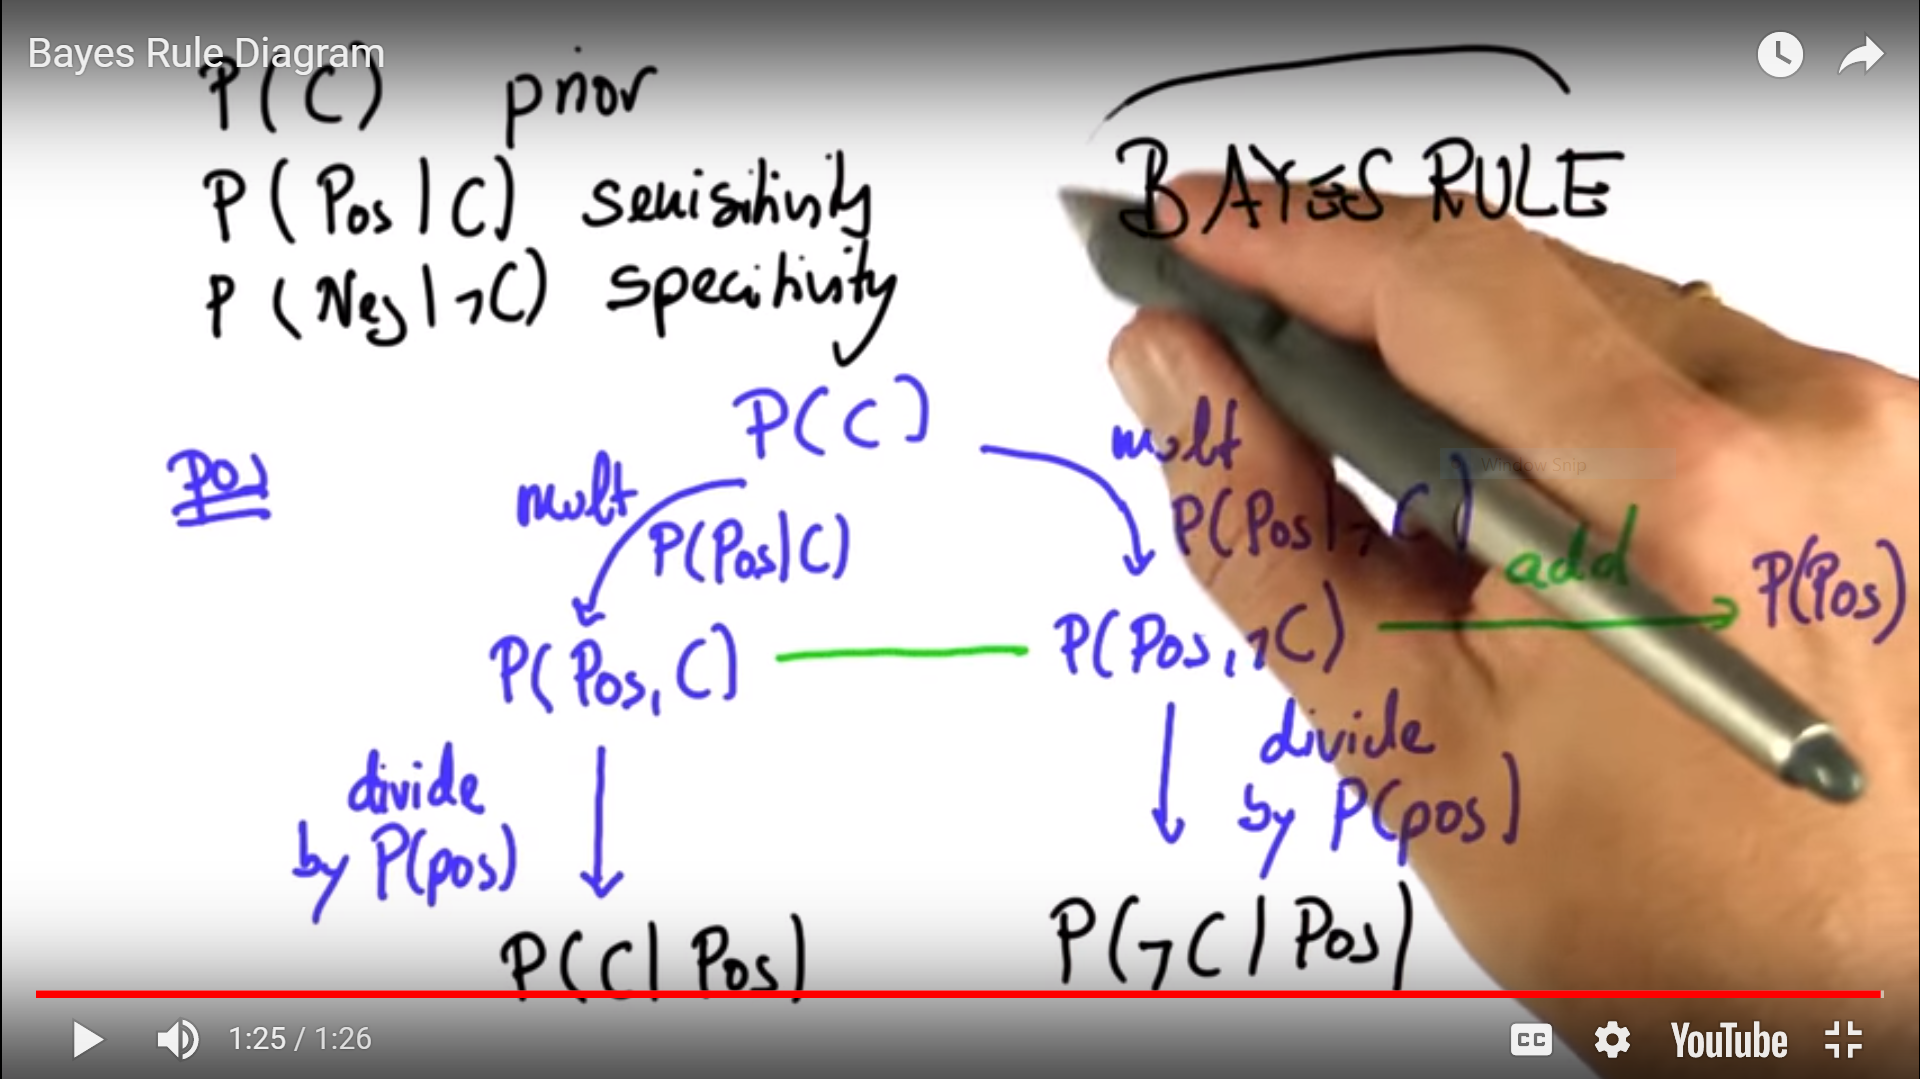 Bayes Rule Diagram
P(C) prior
P(Pos|C) sensitivity
P(Neg|¬C) specitivity
BAYES RULE
Pos
P(C)
mult
P(Pos|C)
mult
P(Pos|¬C)
P(Pos,C)
P(Pos,¬C)
add
P(Pos)
divide
by P(pos)
divide
by P(pos)
P(C|Pos)
P(¬C|Pos)
Window Snip
1:25 / 1:26
CC
YouTube